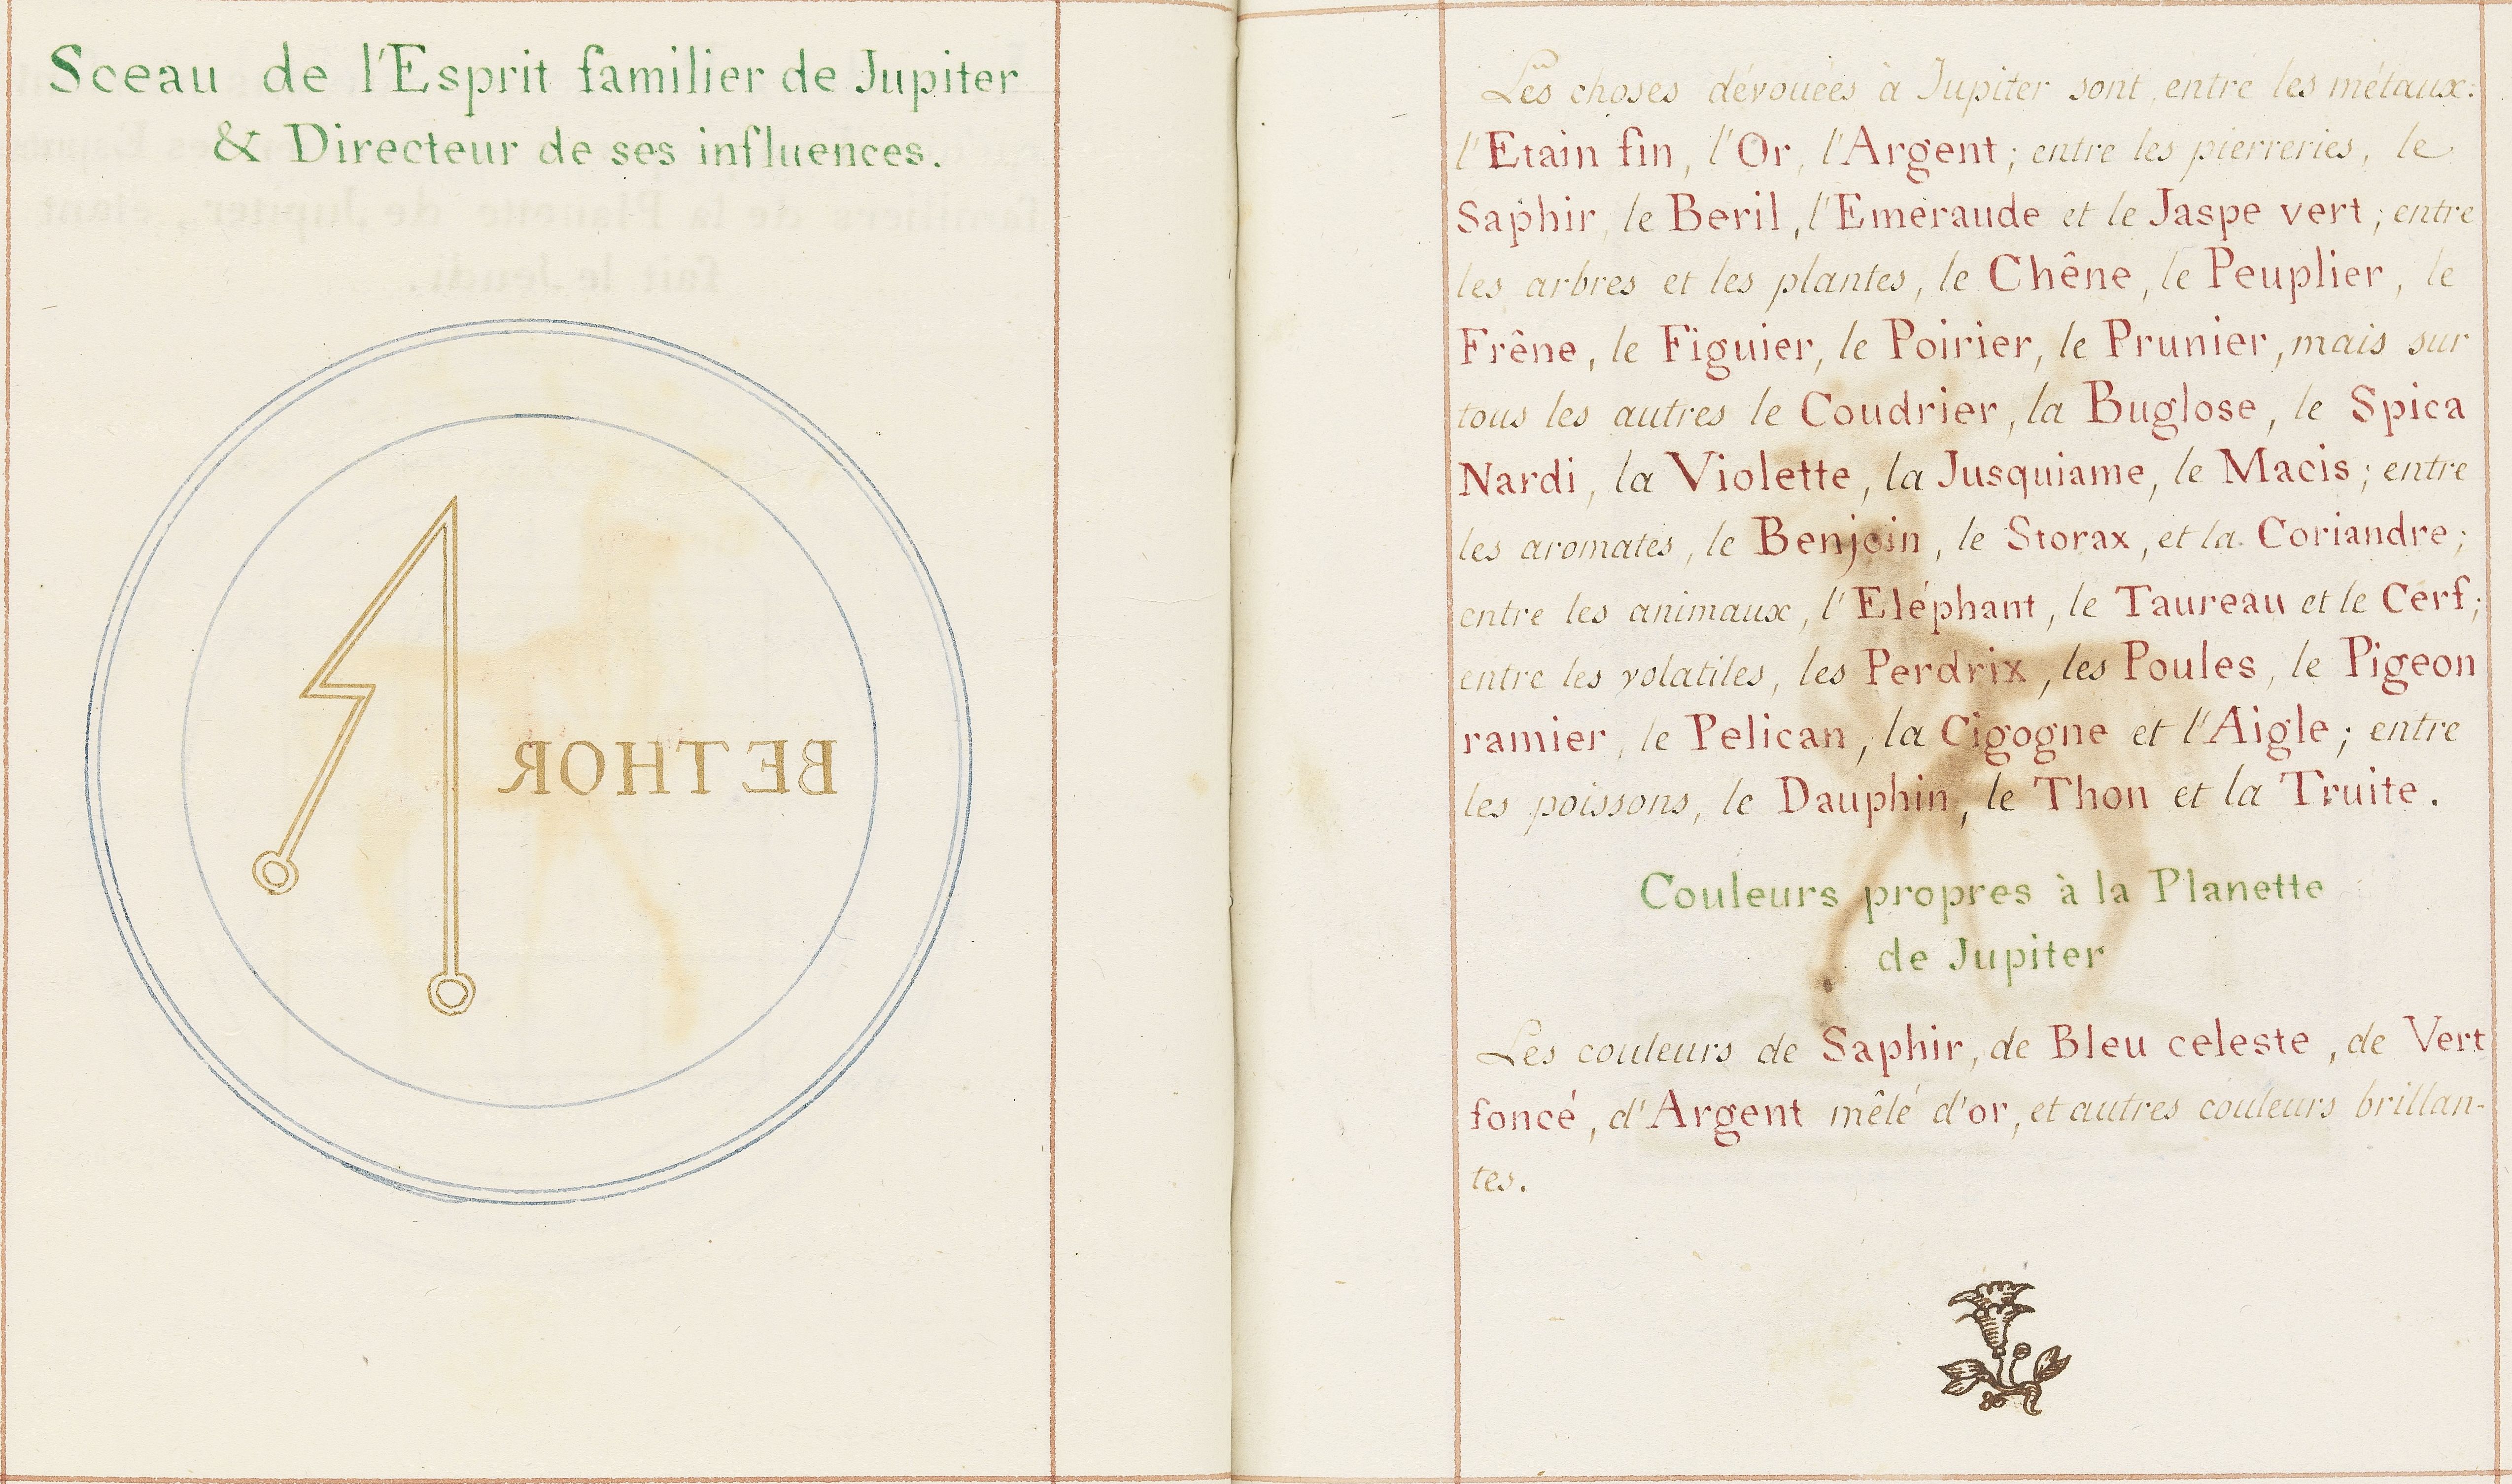 Sceau de l'Esprit familier de Jupiter
& Directeur de ses influences.
BETHOR
Les choses dévouées à Jupiter sont, entre les métaux:
l'Etain fin, l'Or, l'Argent; entre les pierreries, le
Saphir, le Beril, l'Emeraude et le Jaspe vert; entre
les arbres et les plantes, le Chêne, le Peuplier, le
Frêne, le Figuier, le Poirier, le Prunier, mais sur
tous les autres le Coudrier, la Buglose, le Spica
Nardi, la Violette, la Jusquiame, le Macis; entre
les aromates, le Benjoin, le Storax, et la Coriandre;
entre les animaux, l'Eléphant, le Taureau et le Cerf;
entre les volatiles, les Perdrix, les Poules, le Pigeon
ramier, le Pelican, la Cigogne et l'Aigle; entre
les poissons, le Dauphin, le Thon et la Truite.
Couleurs propres à la Planette
de Jupiter
Les couleurs de Saphir, de Bleu celeste, de Vert
foncé, d'Argent mêlé d'or, et autres couleurs brillan-
tes.